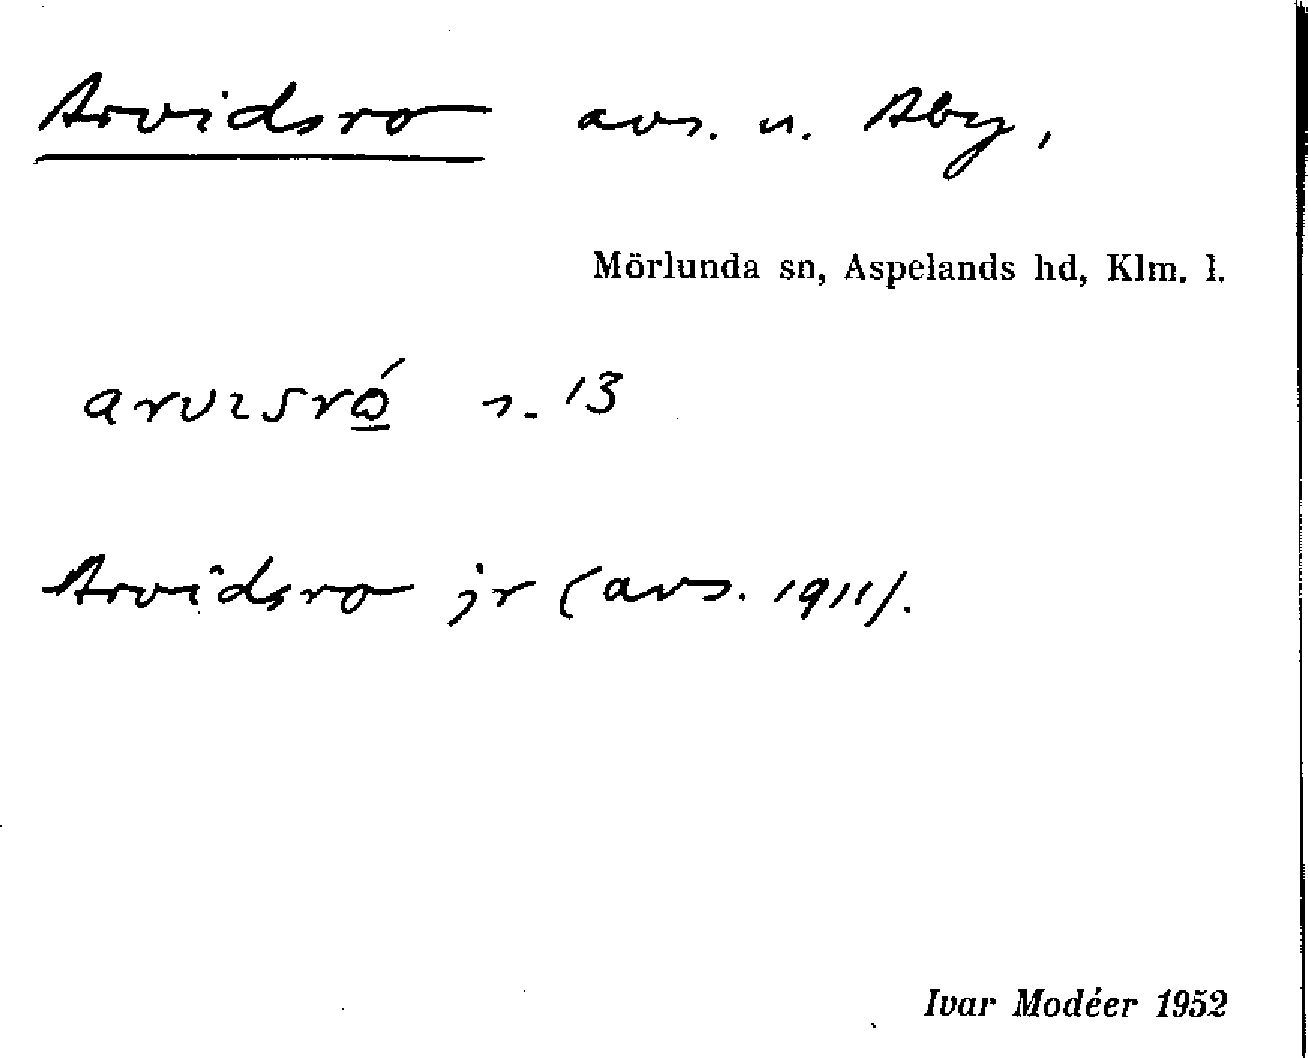 Arvidsro avs. u. Åby,
Mörlunda sn, Aspelands hd, Klm. l.
arvɩsró̲ s. 13
Arvidsro jr (avs. 1911).
Ivar Modéer 1952